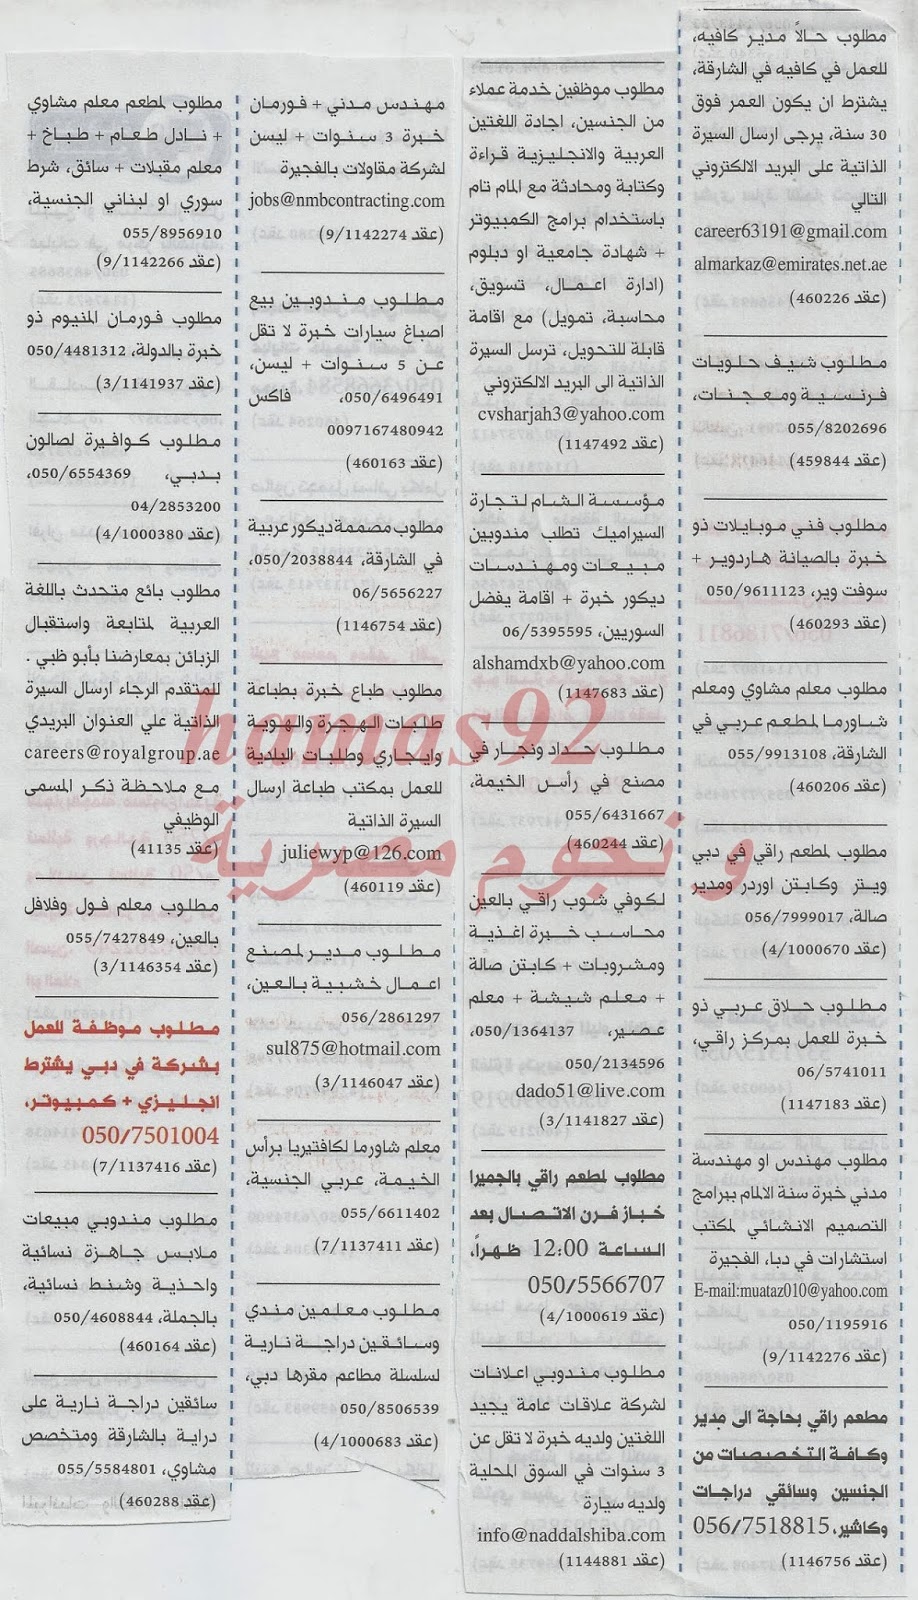 مطلوب حالاً مدير كافيه،
للعمل في كافيه في الشارقة،
يشترط ان يكون العمر فوق
30 سنة، يرجى ارسال السيرة
الذاتية على البريد الالكتروني
التالي
career63191@gmail.com
almarkaz@emirates.net.ae
(عقد 460226)
مطلوب شيف حلويات
فرنسية ومعجنات،
055/8202696
(عقد 459844)
مطلوب فني موبايلات ذو
خبرة بالصيانة هاردوير +
سوفت وير، 050/9611123
(عقد 460293)
مطلوب معلم مشاوي ومعلم
شاورما لمطعم عربي في
الشارقة، 055/9913108
(عقد 460206)
مطلوب لمطعم راقي في دبي
ويتر وكابتن اوردر ومدير
صالة، 056/7999017
(عقد 4/1000670)
مطلوب حلاق عربي ذو
خبرة للعمل بمركز راقي،
06/5741011
(عقد 1147183)
مطلوب مهندس او مهندسة
مدني خبرة سنة الالمام ببرامج
التصميم الانشائي لمكتب
استشارات في دبا، الفجيرة
E-mail:muataz010@yahoo.com
050/1195916
(عقد 9/1142276)
مطعم راقي بحاجة الى مدير
وكافة التخصصات من
الجنسين وسائقي دراجات
وكاشير، 056/7518815
(عقد 1146756)
مطلوب موظفين خدمة عملاء
من الجنسين، اجادة اللغتين
العربية والانجليزية قراءة
وكتابة ومحادثة مع المام تام
باستخدام برامج الكمبيوتر
+ شهادة جامعية او دبلوم
(ادارة اعمال، تسويق،
محاسبة، تمويل) مع اقامة
قابلة للتحويل، ترسل السيرة
الذاتية الى البريد الالكتروني
cvsharjah3@yahoo.com
(عقد 1147492)
مؤسسة الشام لتجارة
السيراميك تطلب مندوبين
مبيعات ومهندسات
ديكور خبرة + اقامة يفضل
السوريين، 06/5395595
alshamdxb@yahoo.com
(عقد 1147683)
مطلوب حداد ونجار في
مصنع في رأس الخيمة،
055/6431667
(عقد 460244)
لكوفي شوب راقي بالعين
محاسب خبرة اغذية
ومشروبات + كابتن صالة
+ معلم شيشة + معلم
عصير، 050/1364137،
050/2134596
dado51@live.com
(عقد 3/1141827)
مطلوب لمطعم راقي بالجميرا
خباز فرن الاتصال بعد
الساعة 12:00 ظهراً،
050/5566707
(عقد 4/1000619)
مطلوب مندوبي اعلانات
لشركة علاقات عامة يجيد
اللغتين ولديه خبرة لا تقل عن
3 سنوات في السوق المحلية
ولديه سيارة
info@naddalshiba.com
(عقد 1144881)
مهندس مدني + فورمان
خبرة 3 سنوات + ليسن
لشركة مقاولات بالفجيرة
jobs@nmbcontracting.com
(عقد 9/1142274)
مطلوب مندوبين بيع
اصباغ سيارات خبرة لا تقل
عن 5 سنوات + ليسن،
050/6496491، فاكس
0097167480942
(عقد 460163)
مطلوب مصممة ديكور عربية
في الشارقة، 050/2038844،
06/5656227
(عقد 1146754)
مطلوب طباع خبرة بطباعة
طلبات الهجرة والهوية
وايجاري وطلبات البلدية
للعمل بمكتب طباعة ارسال
السيرة الذاتية
juliewyp@126.com
(عقد 460119)
مطلوب مدير لمصنع
اعمال خشبية بالعين،
056/2861297
sul875@hotmail.com
(عقد 3/1146047)
معلم شاورما لكافتيريا برأس
الخيمة، عربي الجنسية،
055/6611402
(عقد 7/1137411)
مطلوب معلمين مندي
وسائقين دراجة نارية
لسلسلة مطاعم مقرها دبي،
050/8506539
(عقد 4/1000683)
مطلوب لمطعم معلم مشاوي
+ نادل طعام + طباخ +
معلم مقبلات + سائق، شرط
سوري او لبناني الجنسية،
055/8956910
(عقد 9/1142266)
مطلوب فورمان المنيوم ذو
خبرة بالدولة، 050/4481312
(عقد 3/1141937)
مطلوب كوافيرة لصالون
بدبي، 050/6554369،
04/2853200
(عقد 4/1000380)
مطلوب بائع متحدث باللغة
العربية لمتابعة واستقبال
الزبائن بمعارضنا بأبو ظبي .
للمتقدم الرجاء ارسال السيرة
الذاتية علي العنوان البريدي
careers@royalgroup.ae
مع ملاحظة ذكر المسمى
الوظيفي
(عقد 41135)
مطلوب معلم فول وفلافل
بالعين، 055/7427849
(عقد 3/1146354)
مطلوب موظفة للعمل
بشركة في دبي يشترط
انجليزي + كمبيوتر،
050/7501004
(عقد 7/1137416)
مطلوب مندوبي مبيعات
ملابس جاهزة نسائية
واحذية وشنط نسائية،
بالجملة، 050/4608844
(عقد 460164)
سائقين دراجة نارية على
دراية بالشارقة ومتخصص
مشاوي، 055/5584801
(عقد 460288)
hamas92
و نجوم مصرية